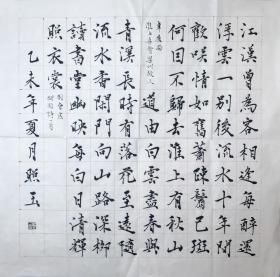 江漢曾為客相逢每醉還
浮雲一別後流水十年間
歡咲情如舊蕭疎鬢已斑
何因不歸去淮上有秋山
淮上喜會梁川故人
韋應物
道由白雲盡春與
青溪長時有落花至遠隨
流水香閒門向山路深柳
讀書堂幽映每白日清輝
照衣裳
劉眘虛
闕題詩一首
乙未年夏月照玉